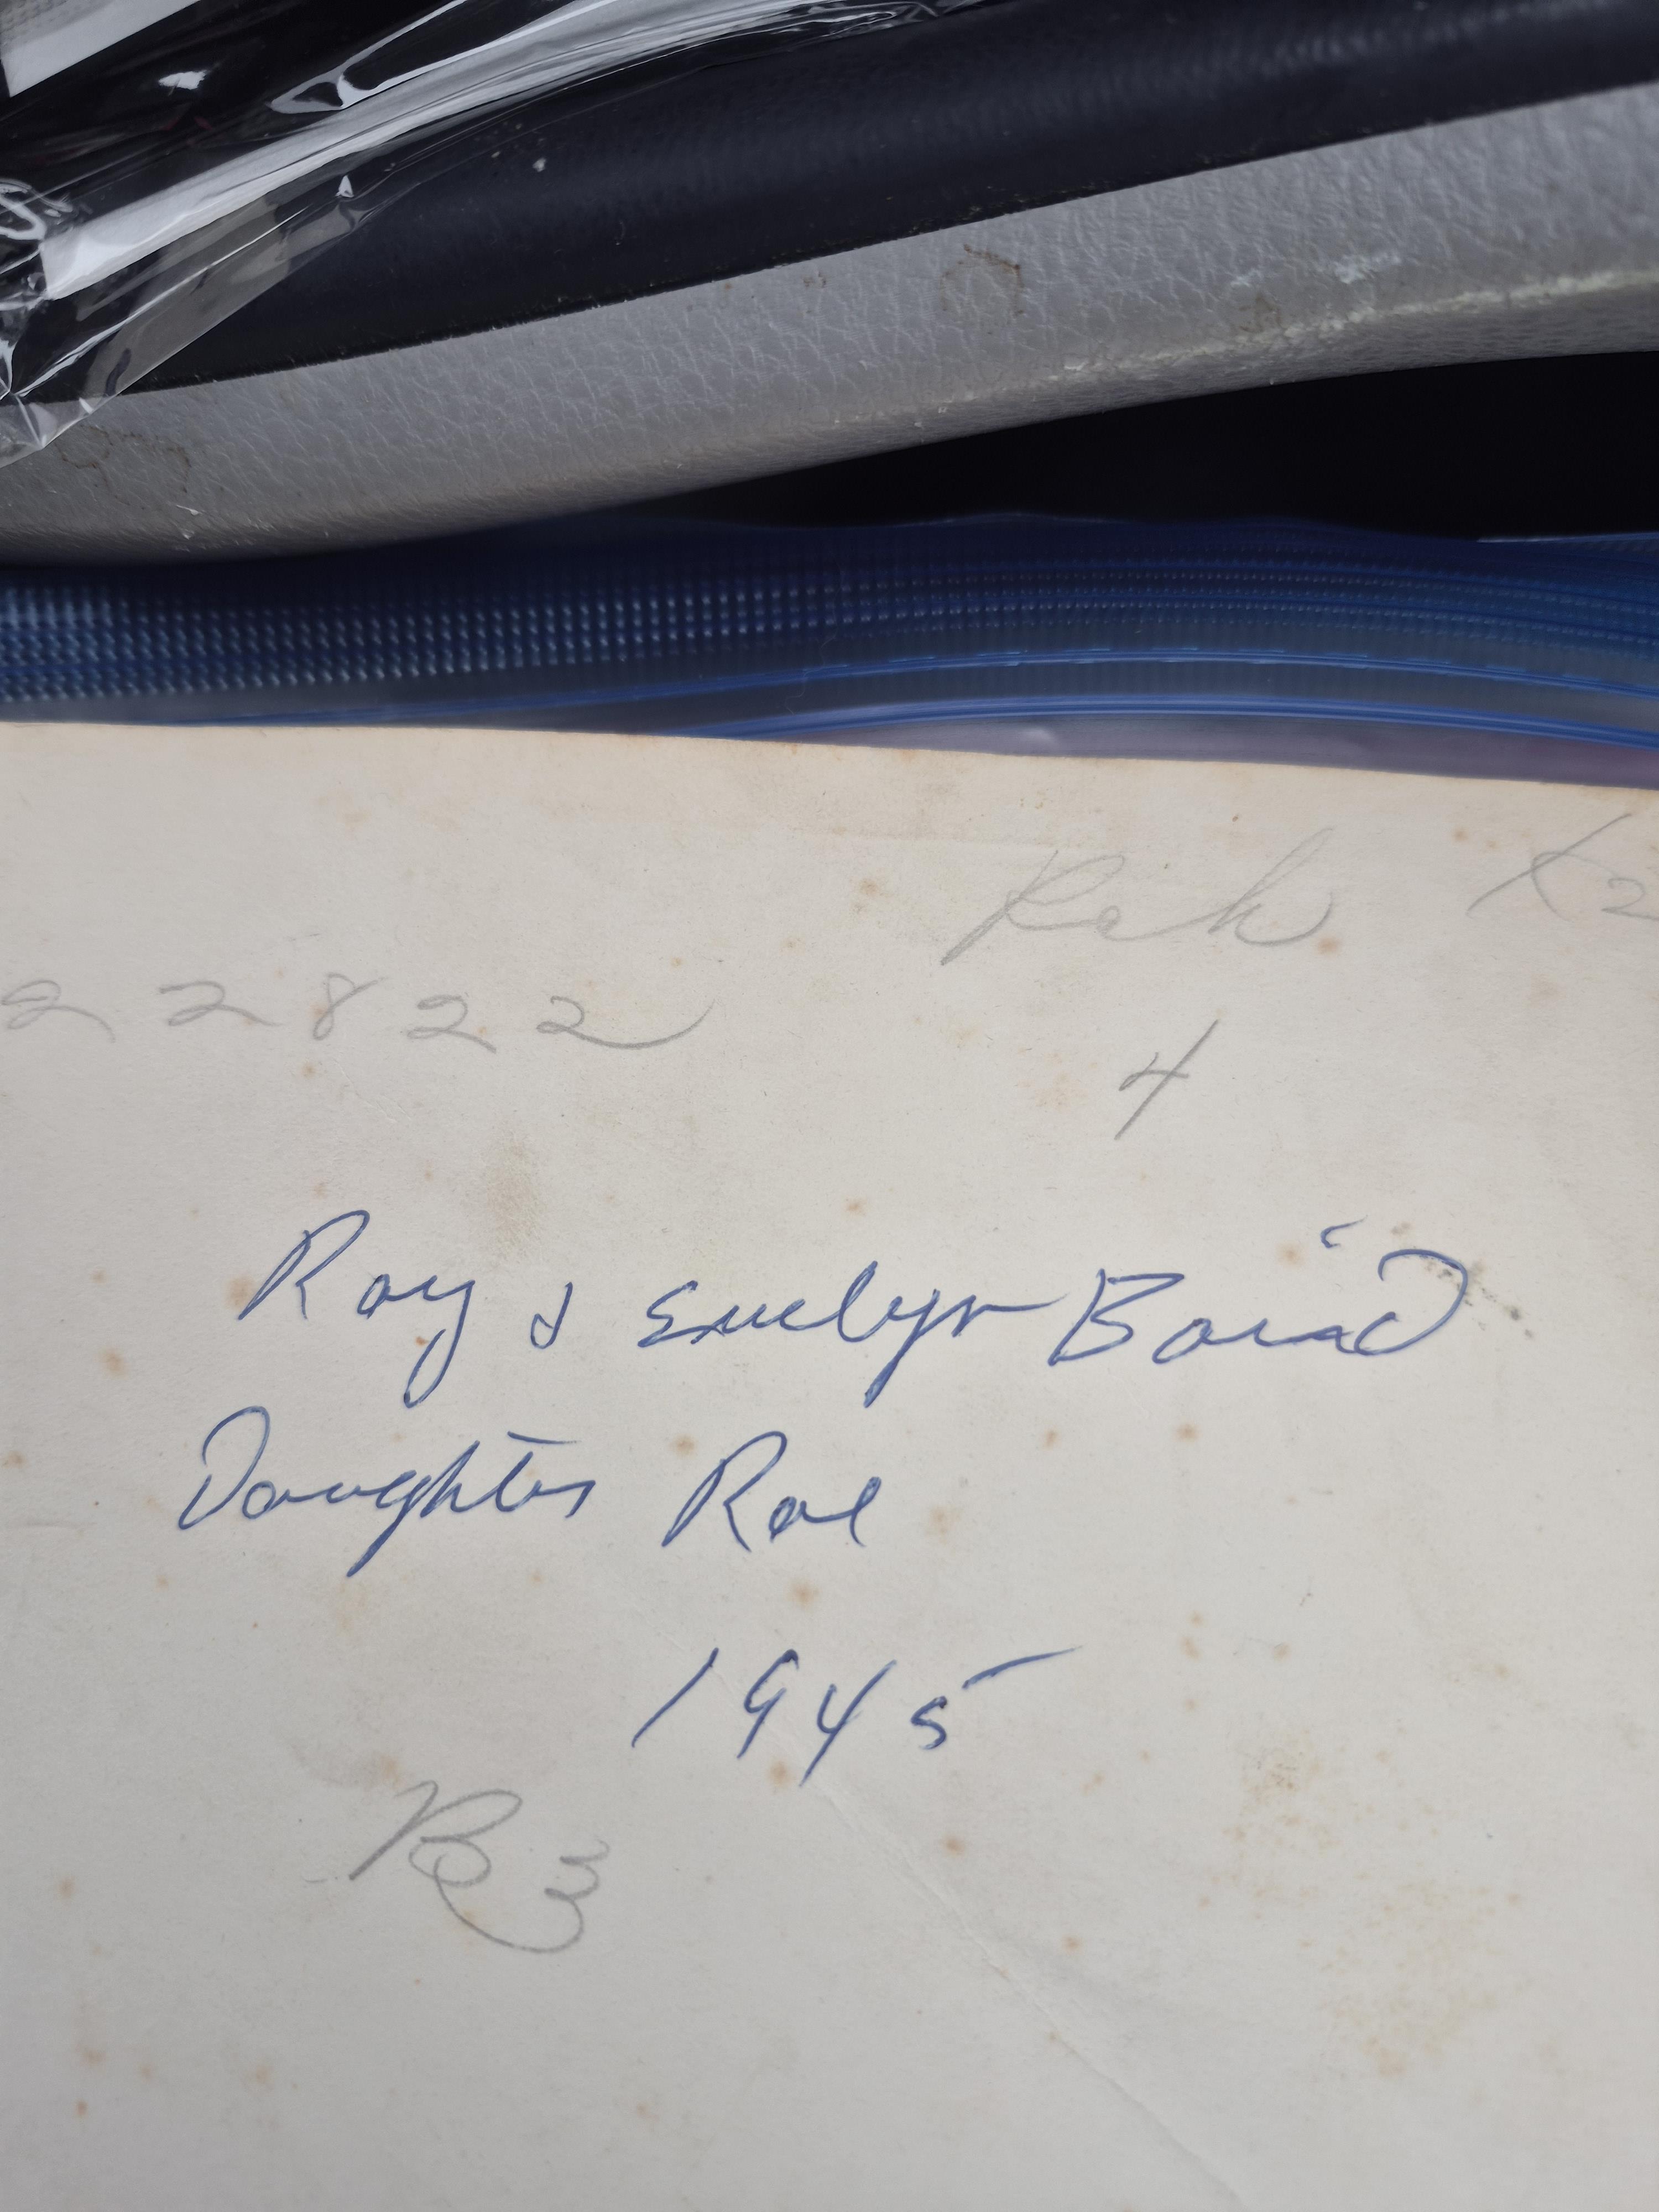 X2
22822
4
Ray & Evelyn Baird
Daughter Rae
1945
B3